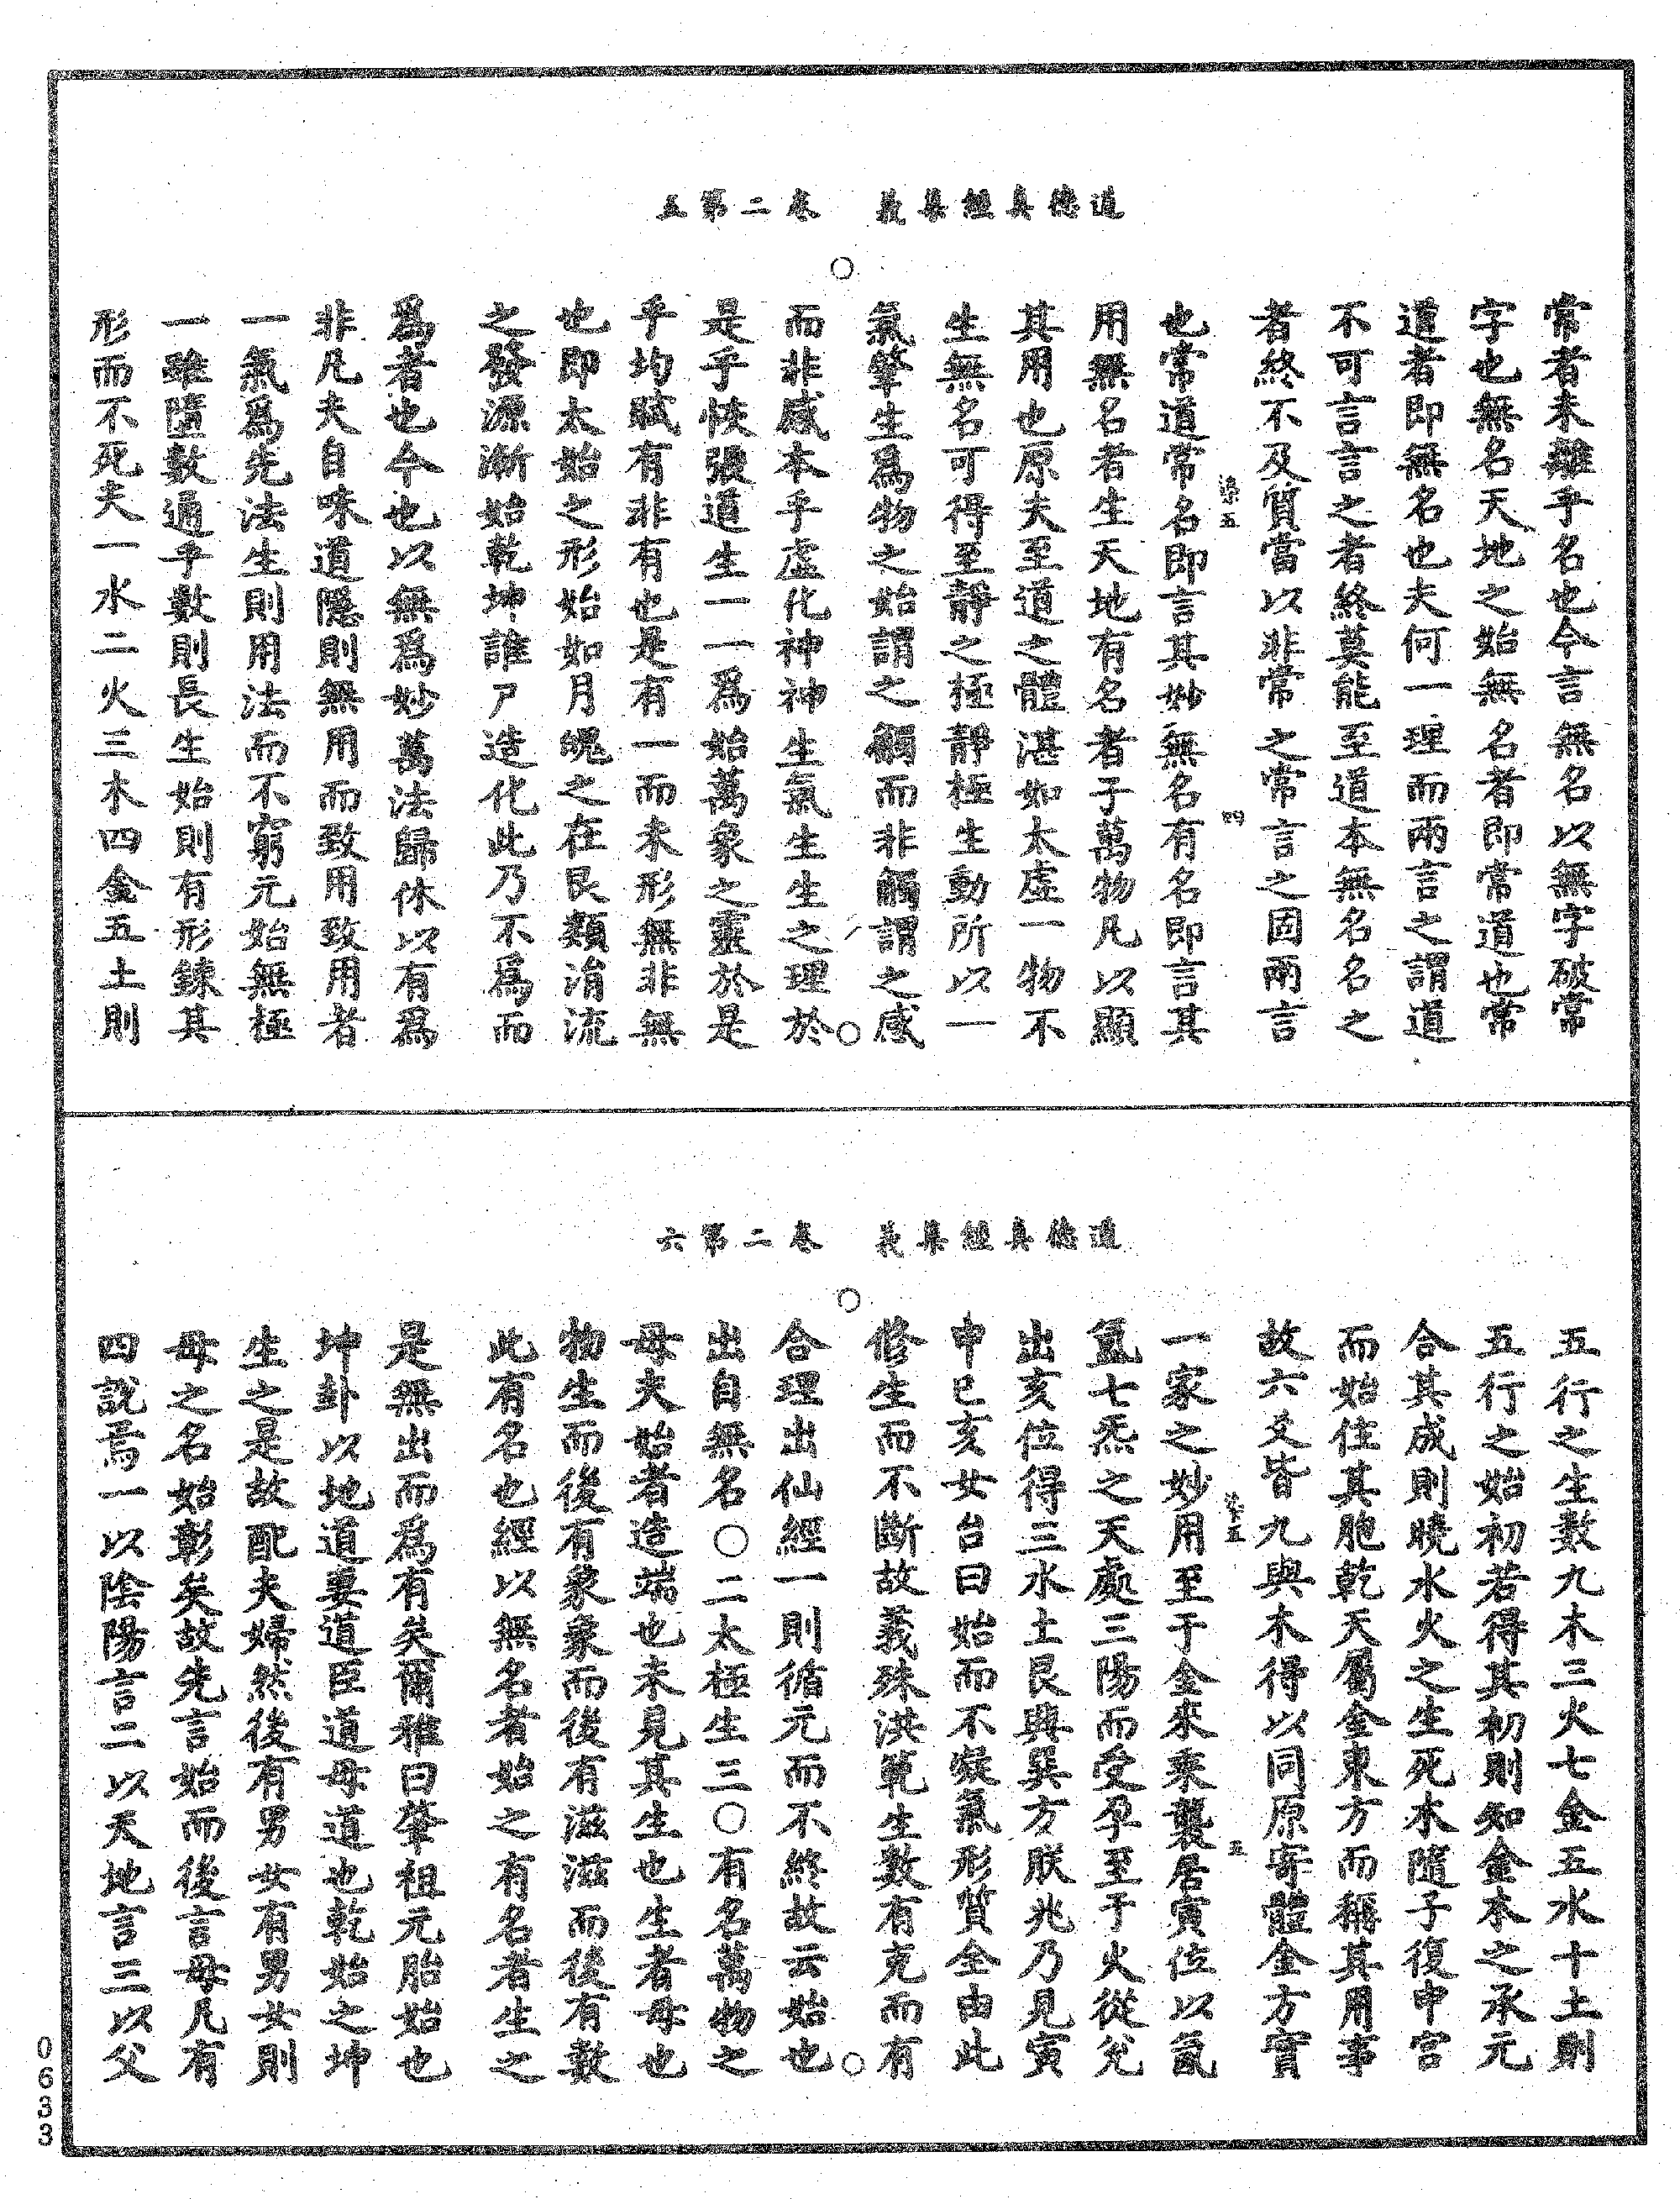 道德真經集義　卷二第五
常者未離乎名也今言無名以無字破常
字也無名天地之始無名者即常道也常
道者即無名也夫何一理而兩言之謂道
不可言言之者終莫能至道本無名名之
者終不及質當以非常之常言之固兩言
也常道常名即言其妙無名有名即言其
用無名者生天地有名者于萬物凡以顯
其用也原夫至道之體湛如太虛一物不
生無名可得至靜之極靜極生動所以一
氣肇生爲物之始謂之觸而非觸謂之感
而非感本乎虛化神神生氣生生之理於
是乎恢張道生一一爲始萬象之靈於是
乎均賦有非有也是有一而未形無非無
也即太始之形始如月魄之在艮類涓流
之發源漸始乾坤誰尸造化此乃不爲而
爲者也今也以無爲妙萬法歸休以有爲
非凡夫自昧道隱則無用而致用致用者
一氣爲先法生則用法而不窮元始無極
一雖墮數通乎數則長生始則有形鍊其
形而不死夫一水二火三木四金五土則
四
道德真經集義　卷二第六
五行之生數九木三火七金五水十土則
五行之始初若得其初則知金木之承元
合其成則曉水火之生死木隨子復申宮
而始住其胞乾天屬金東方而稱其用事
故六爻皆九與木得以同原寄體金方實
一家之妙用至于金來乘襲居寅位以氤
氳七炁之天處三陽而受孕至于火從兌
出亥位得三水土艮與巽方朕兆乃見寅
申巳亥女台曰始而不凝氣形質全由此
修生而不斷故義殊洪範生數有克而有
合理出仙經一則循元而不終故云始也
出自無名○二太極生三○有名萬物之
母夫始者造端也未見其生也生者母也
物生而後有象象而後有滋滋而後有數
此有名也經以無名者始之有名者生之
是無出而爲有矣爾雅曰肇祖元胎始也
坤卦以地道妻道臣道母道也乾始之坤
生之是故配夫婦然後有男女有男女則
母之名始彰矣故先言始而後言母凡有
四說焉一以陰陽言二以天地言三以父
五
0633